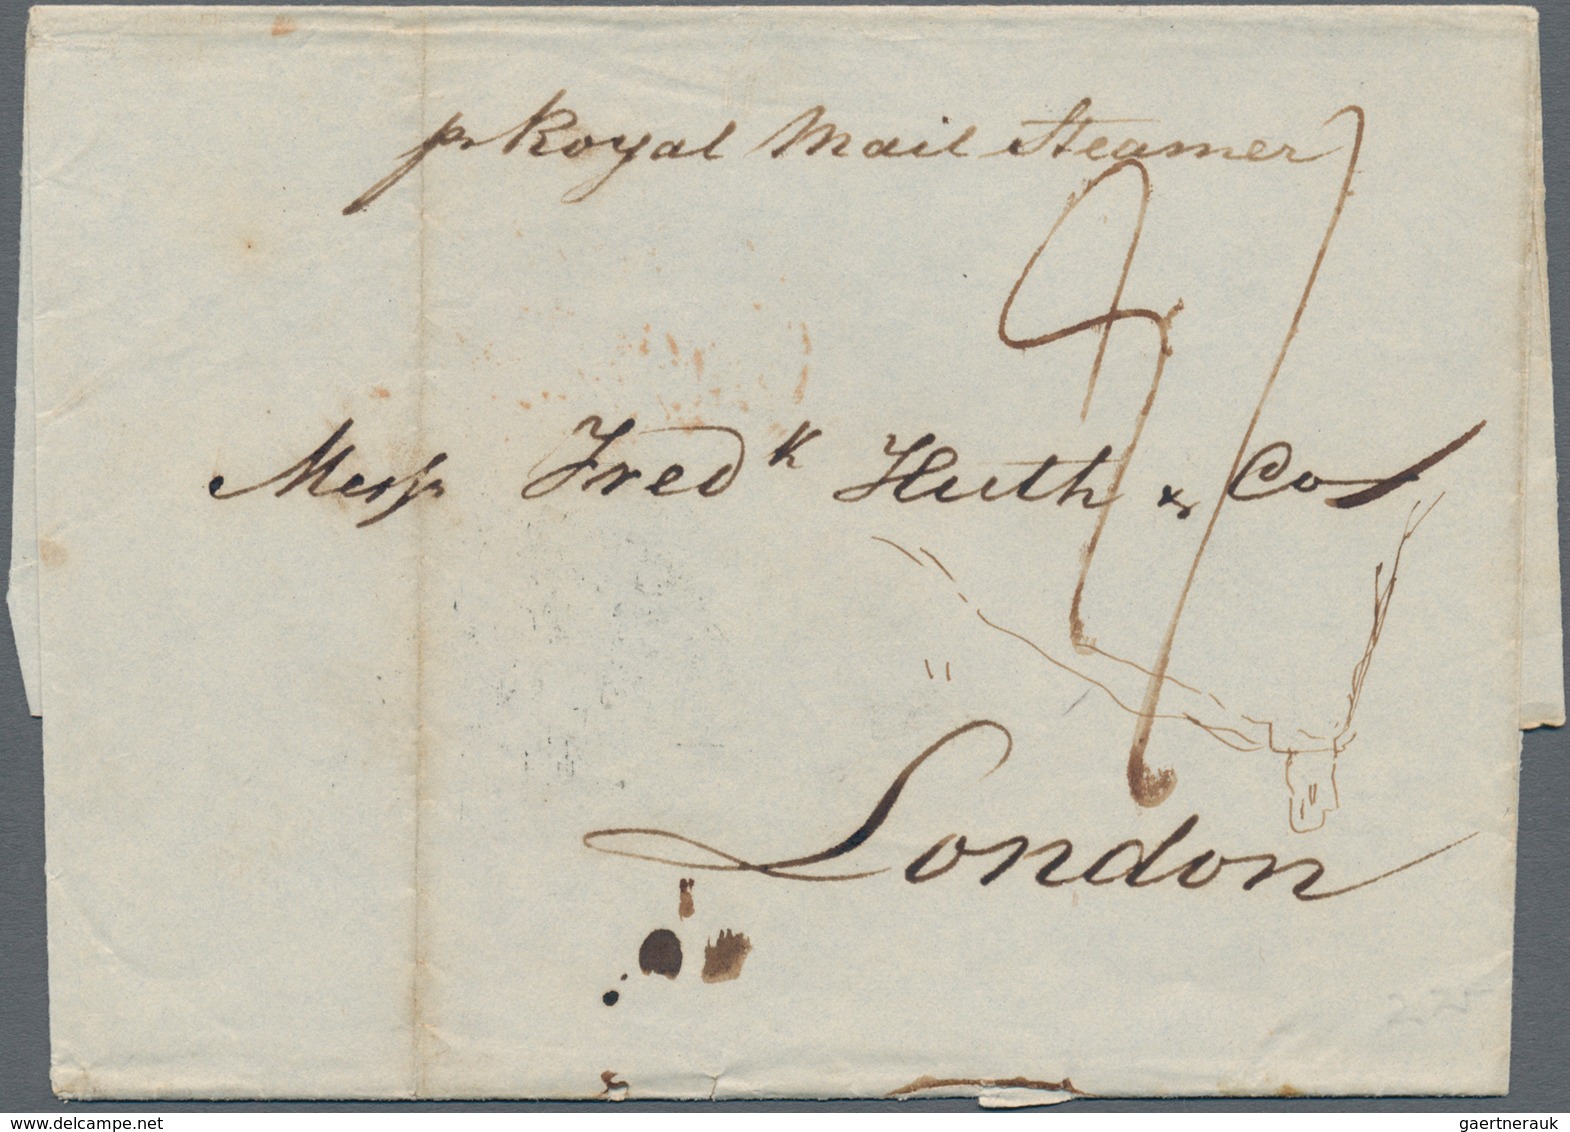 pr Royal Mail Steamer
Messrs Fredk Huth & Co
London
225
www.delcampe.net
gaertnerauk